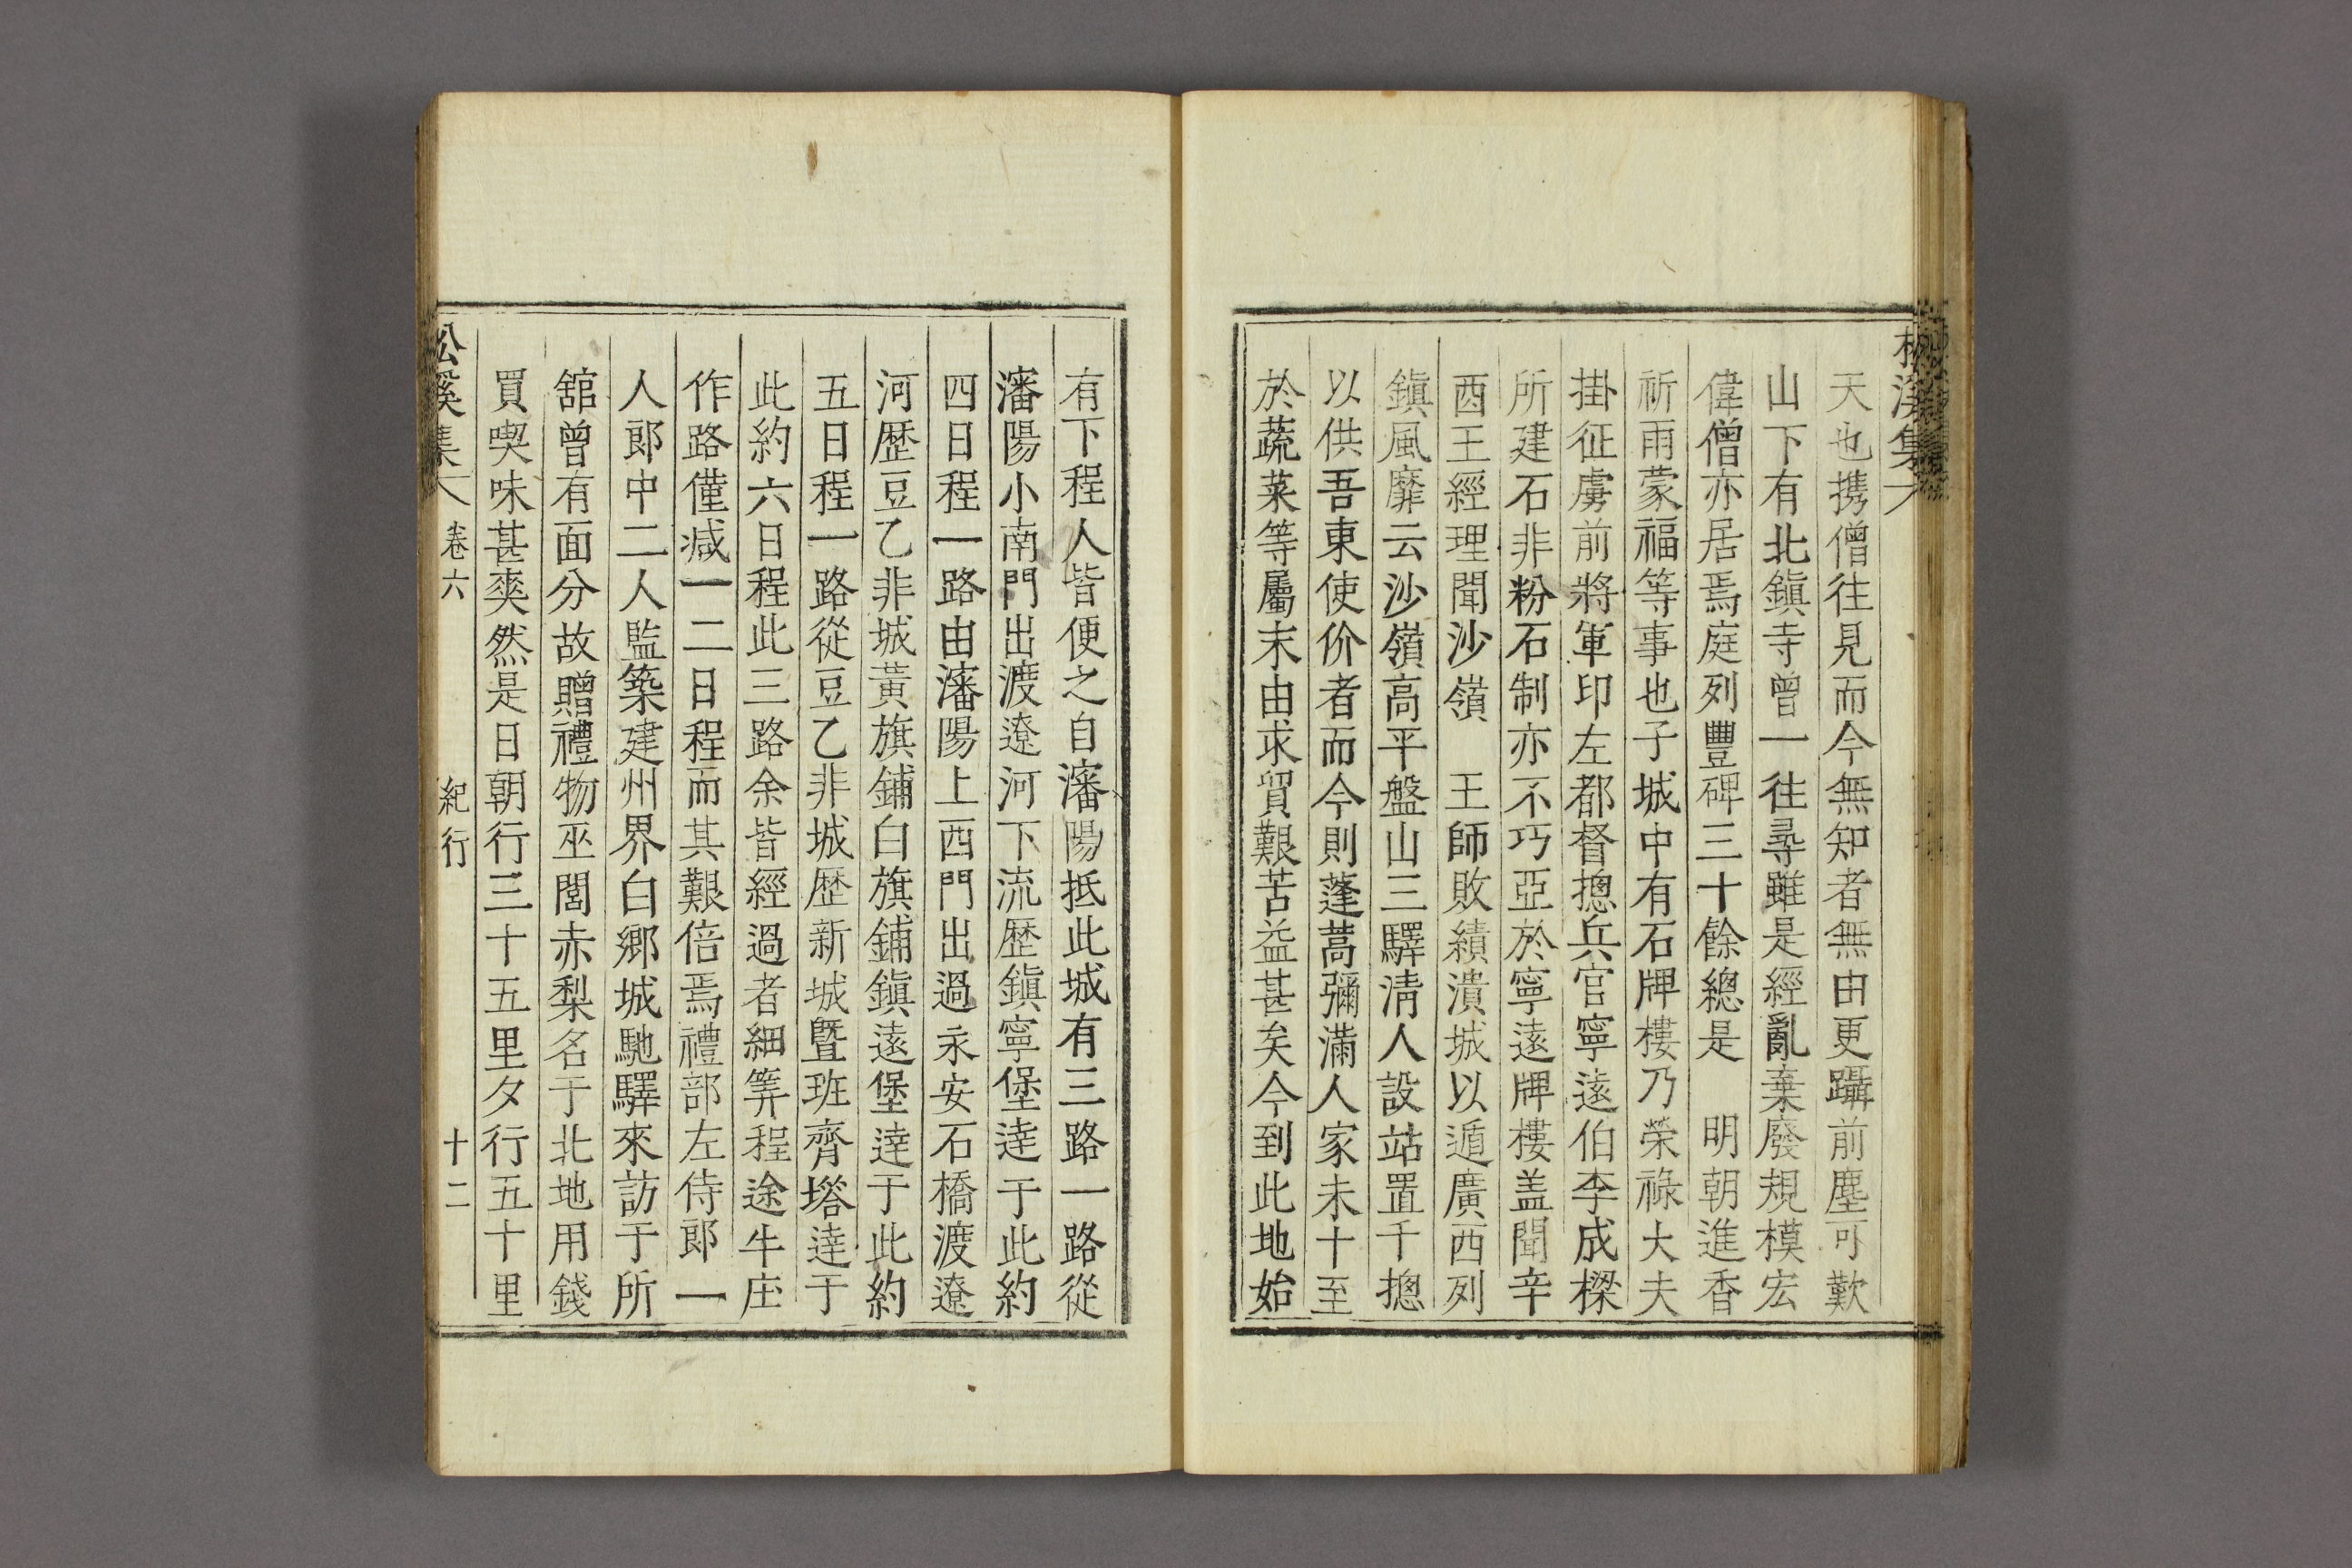 松溪集
天也携僧往見而今無知者無由更躡前塵可歎
山下有北鎭寺曾一往尋雖是經亂棄廢規模宏
偉僧亦居焉庭列豐碑三十餘總是　明朝進香
祈雨蒙福等事也子城中有石牌樓乃榮祿大夫
掛征虜前將軍印左都督摠兵官寧遠伯李成樑
所建石非粉石制亦不巧亞於寧遠牌樓盖聞辛
酉王經理聞沙嶺　王師敗績潰城以遁廣西列
鎭風靡云沙嶺高平盤山三驛淸人設站置千摠
以供吾東使价者而今則蓬蒿彌滿人家未十至
於蔬菜等屬末由求貿艱苦益甚矣今到此地始
有下程人皆便之自瀋陽抵此城有三路一路從
瀋陽小南門出渡遼河下流歷鎭寧堡達于此約
四日程一路由瀋陽上西門出過永安石橋渡遼
河歷豆乙非城黃旗鋪白旗鋪鎭遠堡達于此約
五日程一路從豆乙非城歷新城曁班齊塔達于
此約六日程此三路余皆經過者細筭程途牛庄
作路僅减一二日程而其艱倍焉禮部左侍郞一
人郞中二人監築建州界白鄕城馳驛來訪于所
舘曾有面分故贈禮物巫閭赤梨名于北地用錢
買喫味甚爽然是日朝行三十五里夕行五十里
松溪集 卷六 紀行 十二